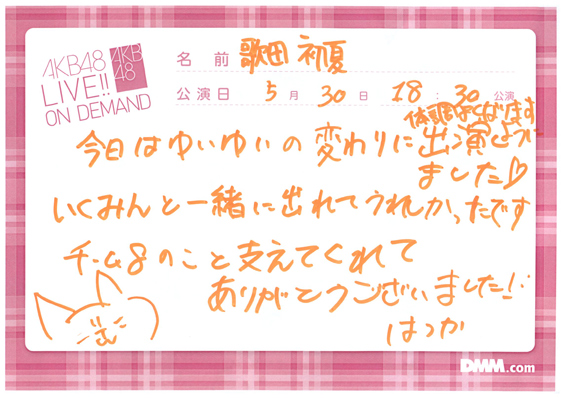 AKB48
LIVE!!
ON DEMAND
AKB
48
名前 歌田 初夏
公演日 5月 30日 18:30 公演
今日はゆいゆいの変わりに出演
ました♡
いくみんと一緒に出れてうれしかったです
チーム8のこと支えてくれて
ありがとうございました!
はつか
DMM.com